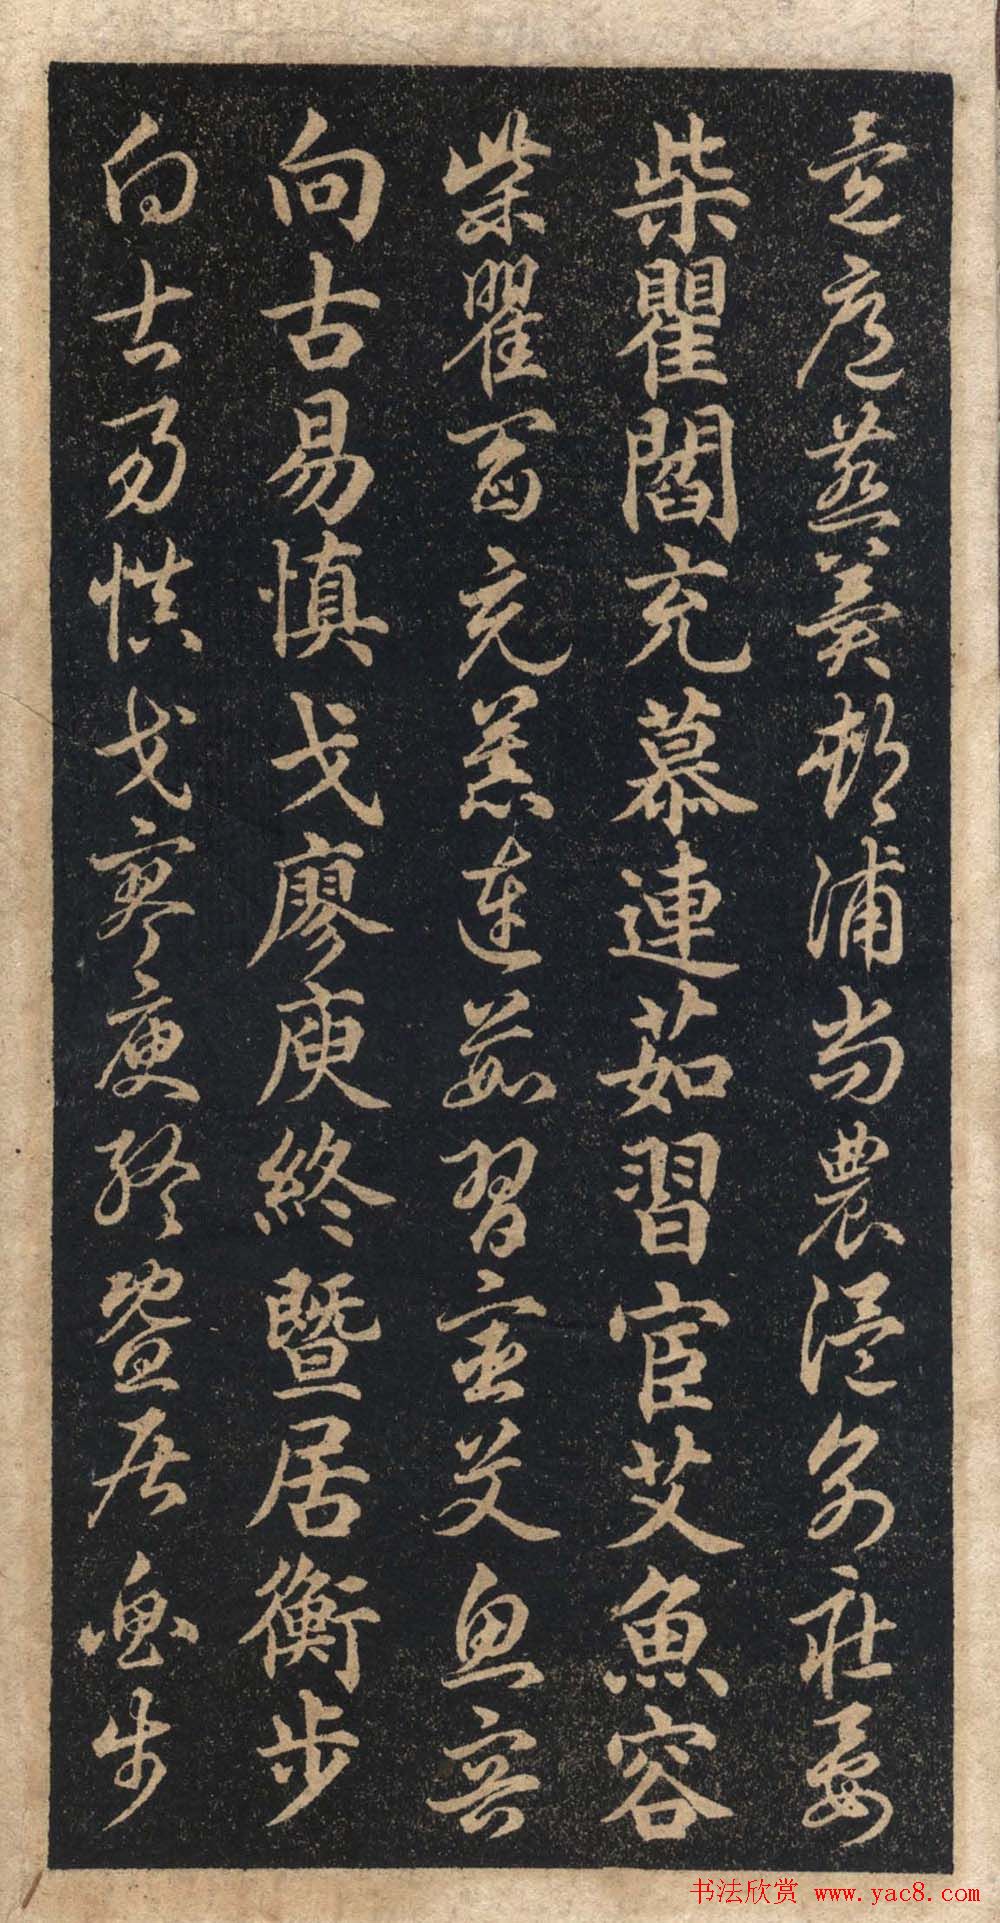 邊扈燕冀郟浦尚農溫別莊晏
柴瞿閻充慕連茹習宦艾魚容
柴瞿閻充慕連茹習宦艾魚容
向古易慎戈廖庾終暨居衡步
向古易慎戈廖庾終暨居衡步
书法欣赏 www.yac8.com